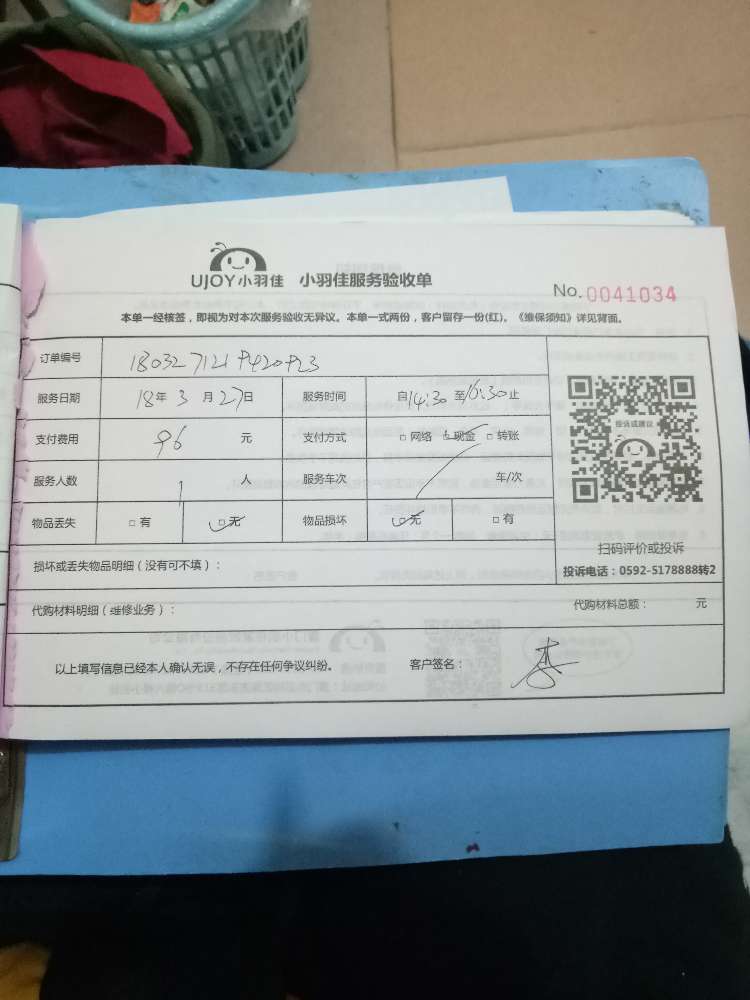 UJOY小羽佳 小羽佳服务验收单 No.0041034
本单一经核签，即视为对本次服务验收无异议。本单一式两份，客户留存一份(红)。《维保须知》详见背面。
订单编号
服务日期 18年3月27日 服务时间 自14:30至16:30止
支付费用 96 元 支付方式 □网络 ☑现金 □转账
服务人数 1 人 服务车次 车/次
物品丢失 □有 ☑无 物品损坏 ☑无 □有
损坏或丢失物品明细（没有可不填）：
投诉或建议
扫码评价或投诉
投诉电话：0592-5178888转2
代购材料明细（维修业务）： 代购材料总额： 元
以上填写信息已经本人确认无误，不存在任何争议纠纷。 客户签名：